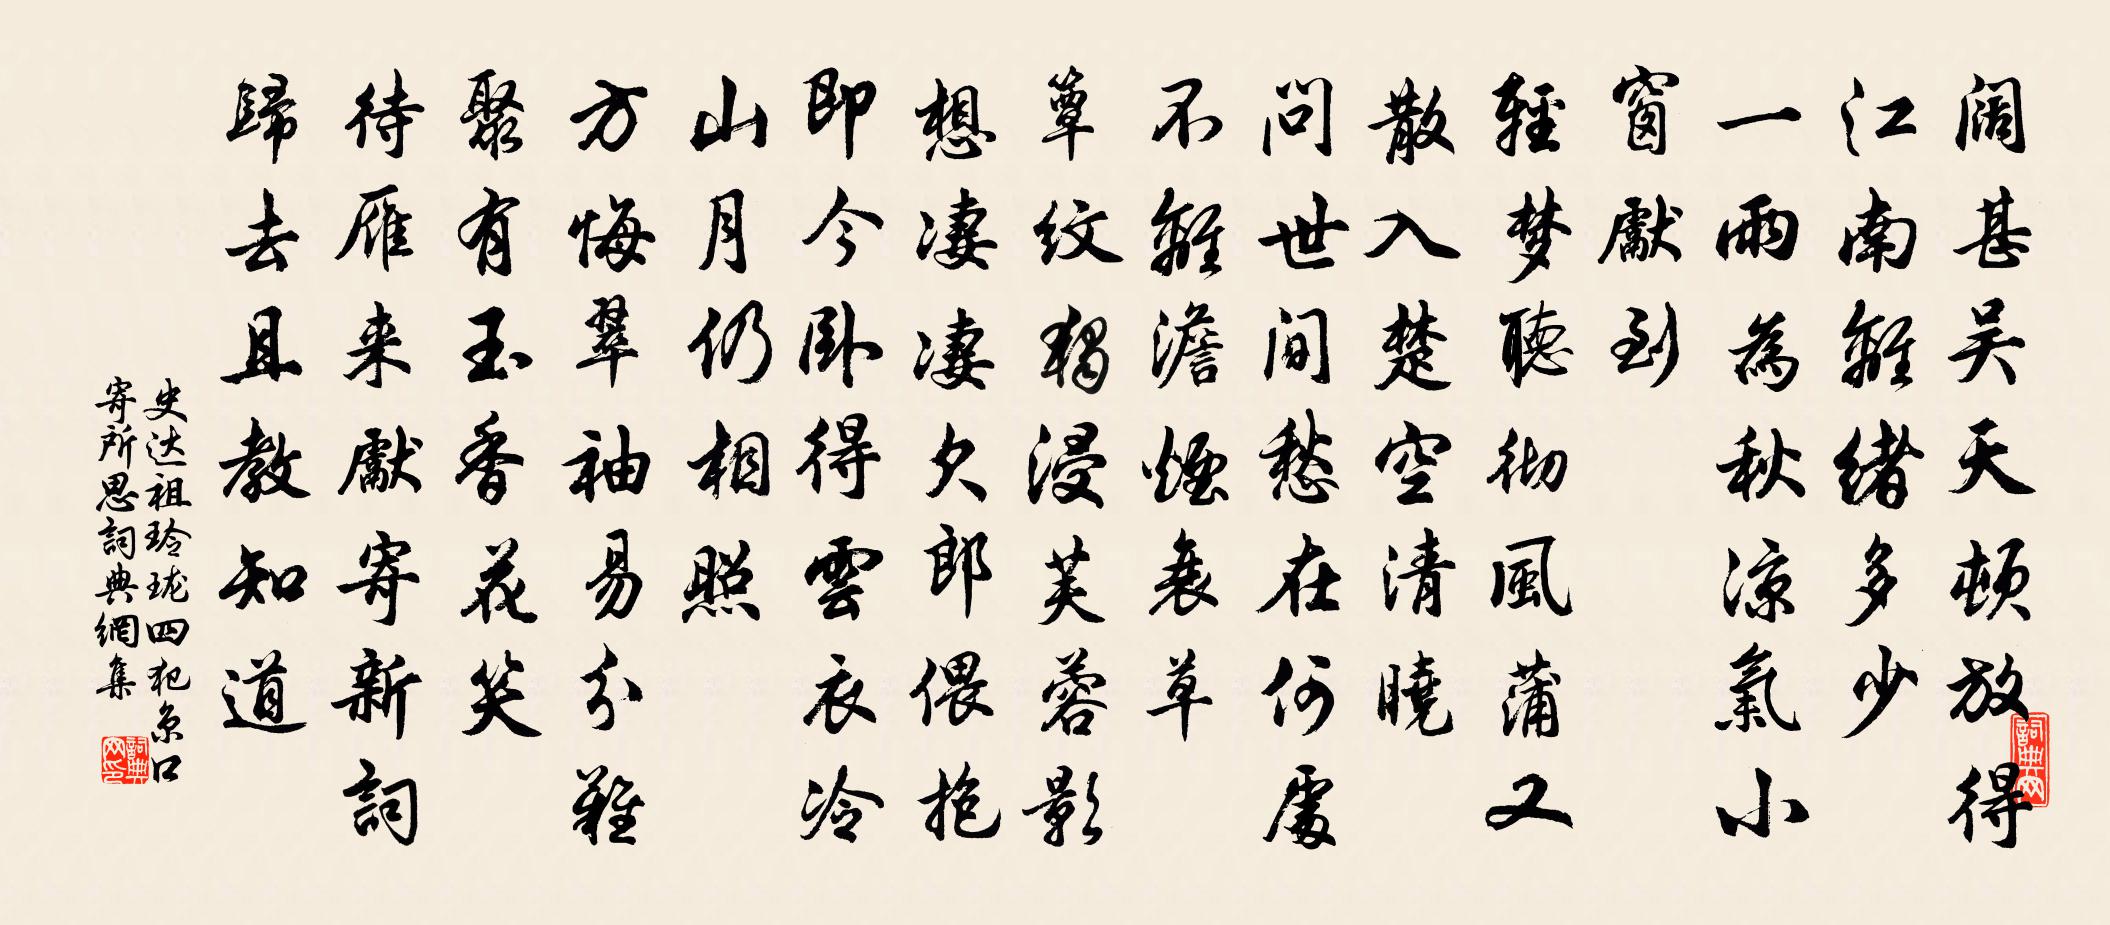 阔甚吴天顿放得
江南離緒多少
一雨為秋凉氣小
窗獻到
輕梦聽彻風蒲又
散入楚空清曉
問世間愁在何處
不離澹煙衰草
簟纹獨浸芙蓉影
想凄凄欠郎偎抱
即今卧得雲衣冷
山月仍相照
方悔翠袖易分難
聚有玉香花笑
待雁来獻寄新詞
歸去且教知道
史达祖玲珑四犯京口
寄所思詞典網集